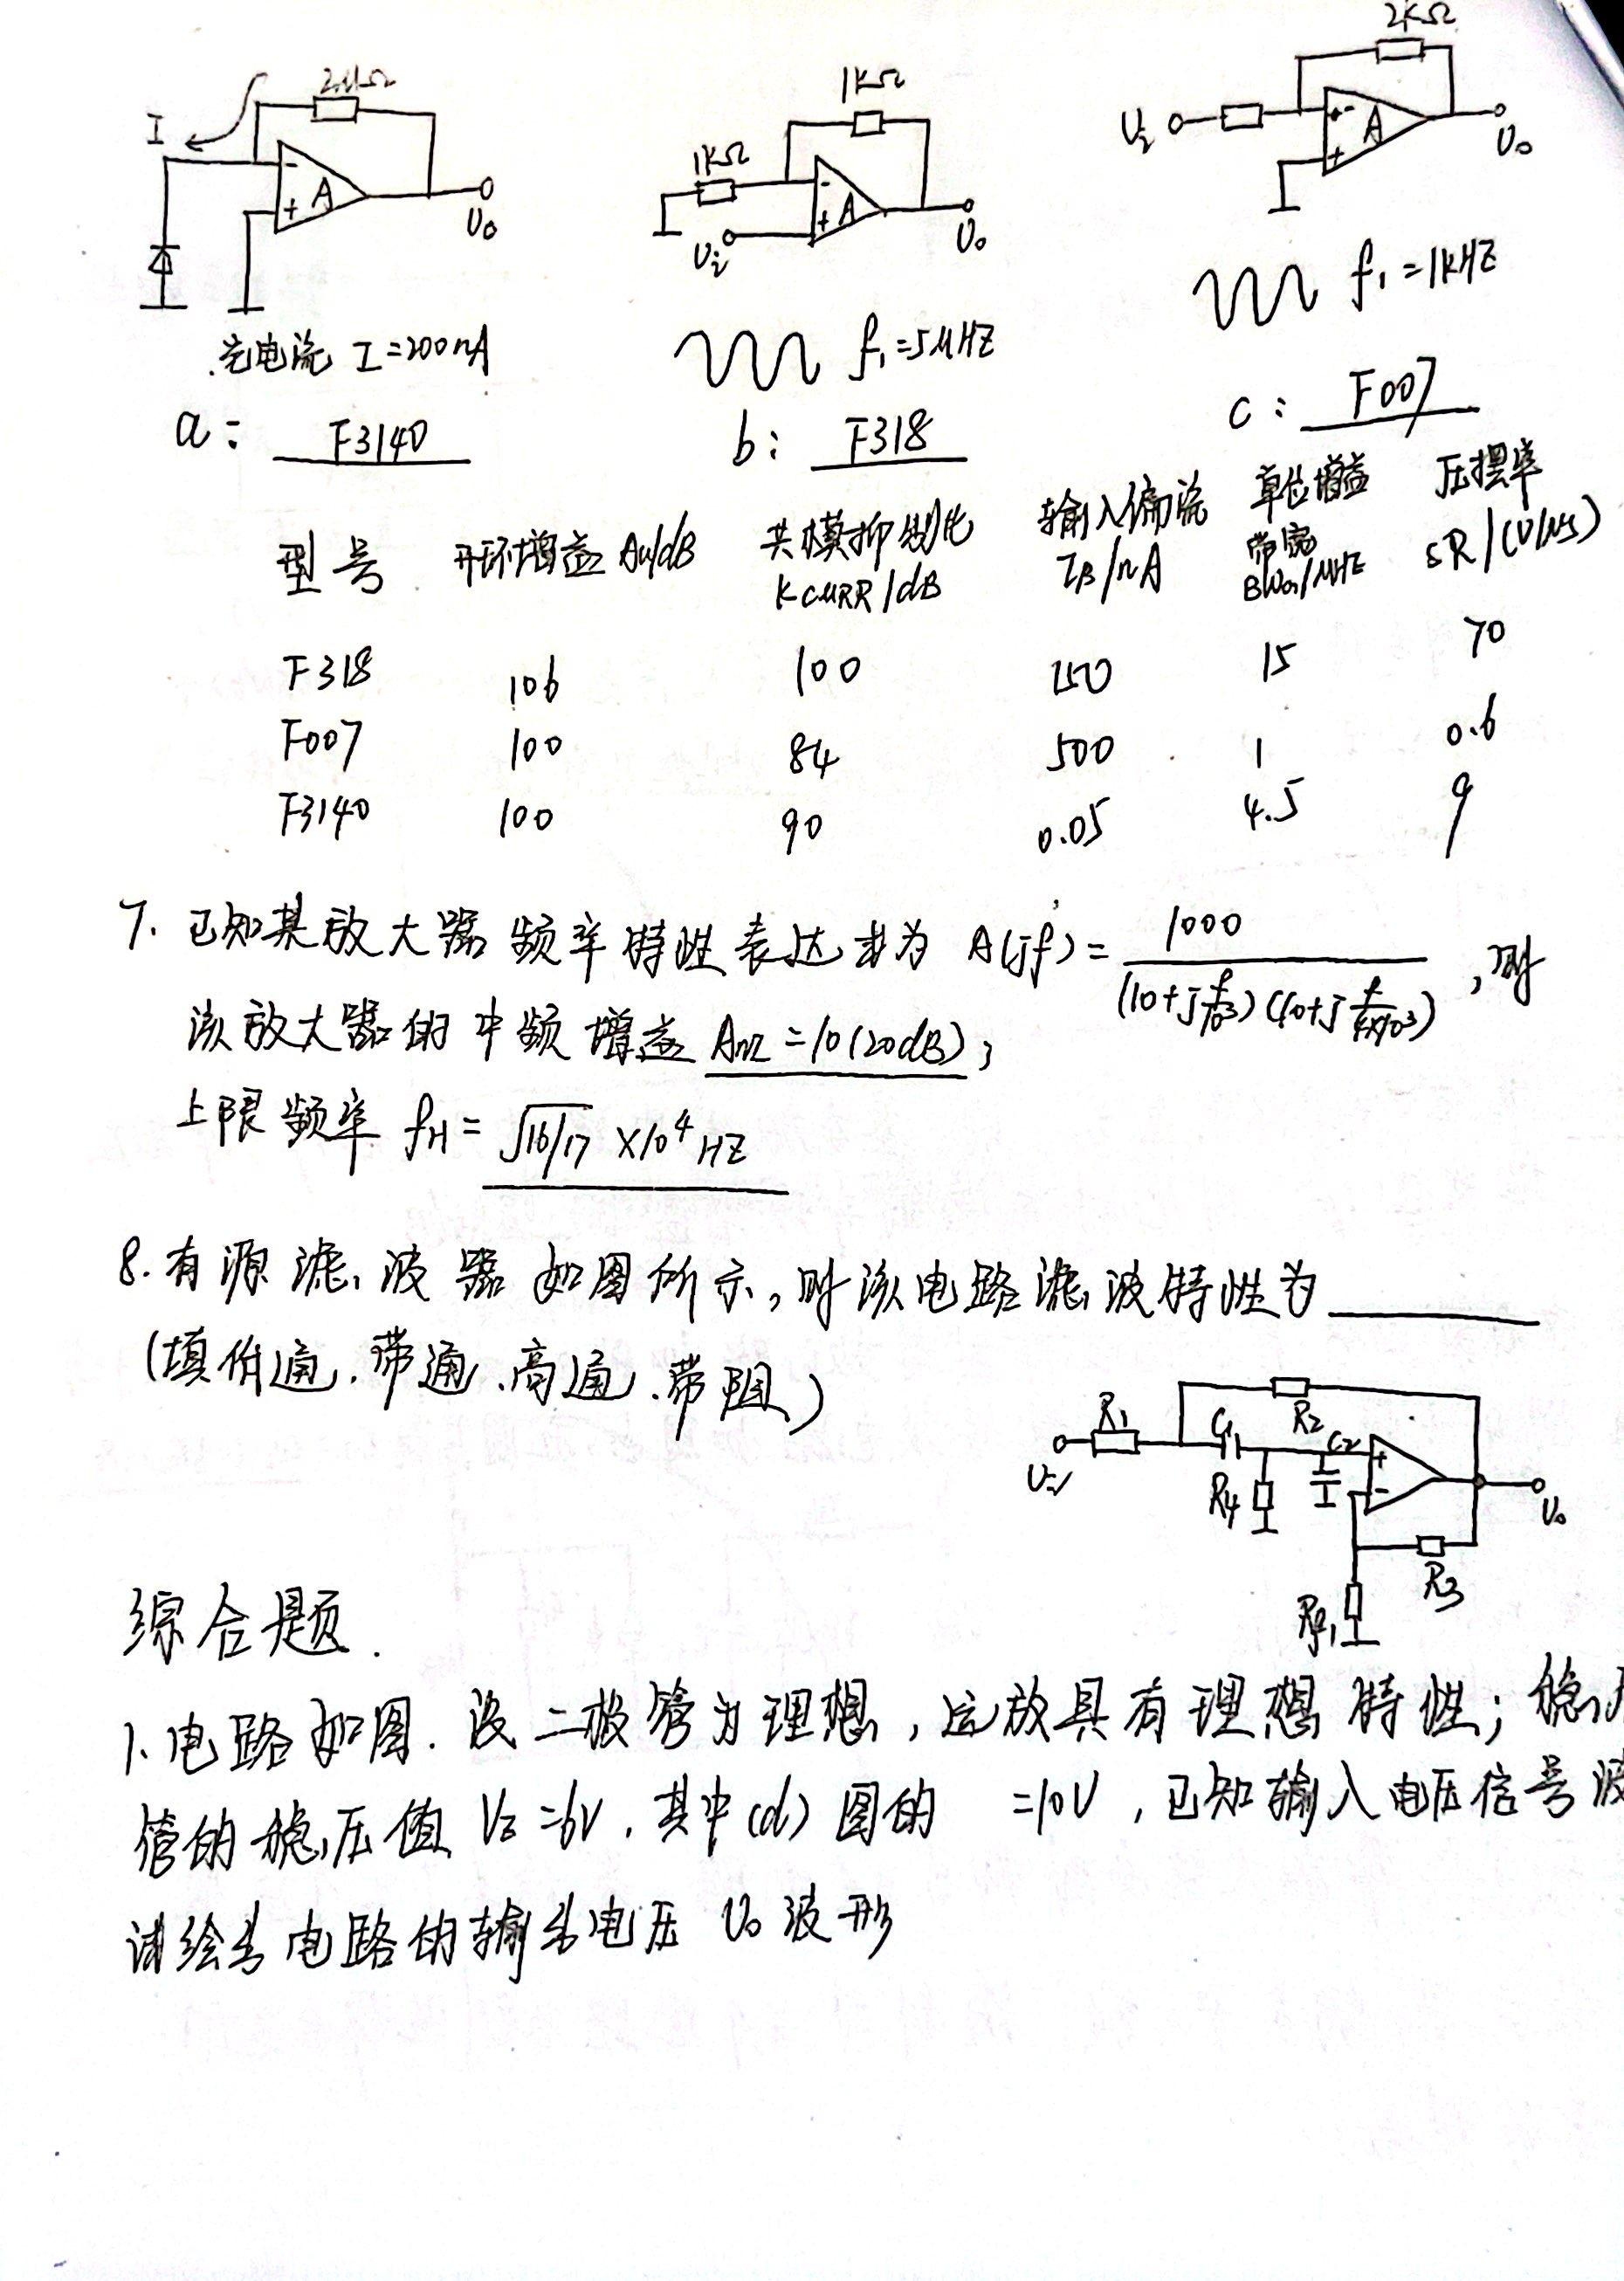 2MΩ
I
A
U₀
光电流 I=200nA
a: F3140
1KΩ
1KΩ
A
Uᵢ
U₀
f₁=5MHZ
b: F318
2KΩ
Uᵢ
A
U₀
f₁=1kHZ
c: F007
型号 开环增益 Au/dB 共模抑制比 KCMRR/dB 输入偏流 IB/nA 单位增益带宽 /MHz 压摆率 SR/(V/μs)
F318 106 100 150 15 70
F007 100 84 500 1 0.6
F3140 100 90 0.05 4.5 9
7. 已知某放大器频率特性表达式为 A(jf)= 1000 / (10+j f/10³)(10+j f/4×10³) ,则
该放大器的中频增益 Am=10(20dB);
上限频率 fH= √16/17 ×10⁴HZ
8.有源滤波器如图所示,则该电路滤波特性为
(填低通.带通、高通.带阻)
R₁
C₁
R₂
C₂
Uᵢ
R₄
+
-
U₀
R₃
综合题.
1、电路如图.设二极管为理想,运放具有理想特性;稳压
管的稳压值 Vz=6V,其中(d)图的 =10V,已知输入电压信号波
试绘出电路的输出电压 U₀ 波形